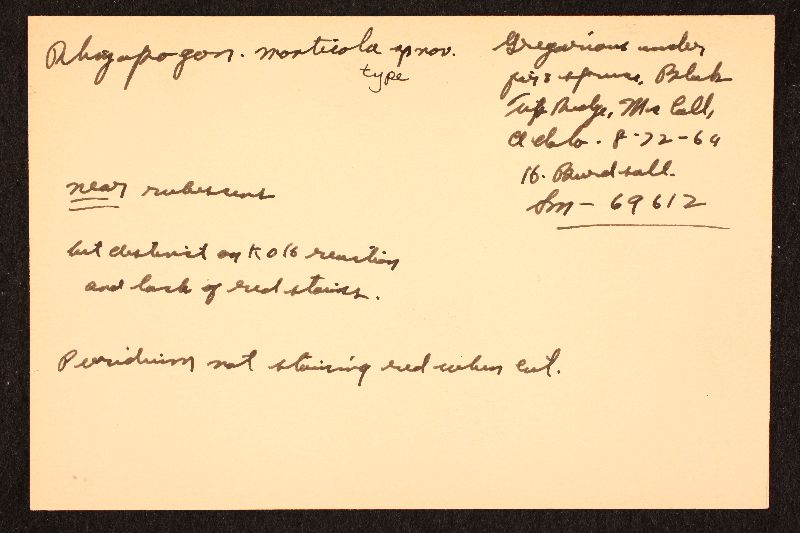 Rhizopogon. monticola sp nov.
type
Gregarious under
fir & spruce, Black
Tip Ridge, Mc Call,
Idaho. 8-22-64
H. Burdsall.
Sm- 69612
near rubescens
but distinct on KOH reaction
and lack of red stains.
Peridium not staining red when cut.